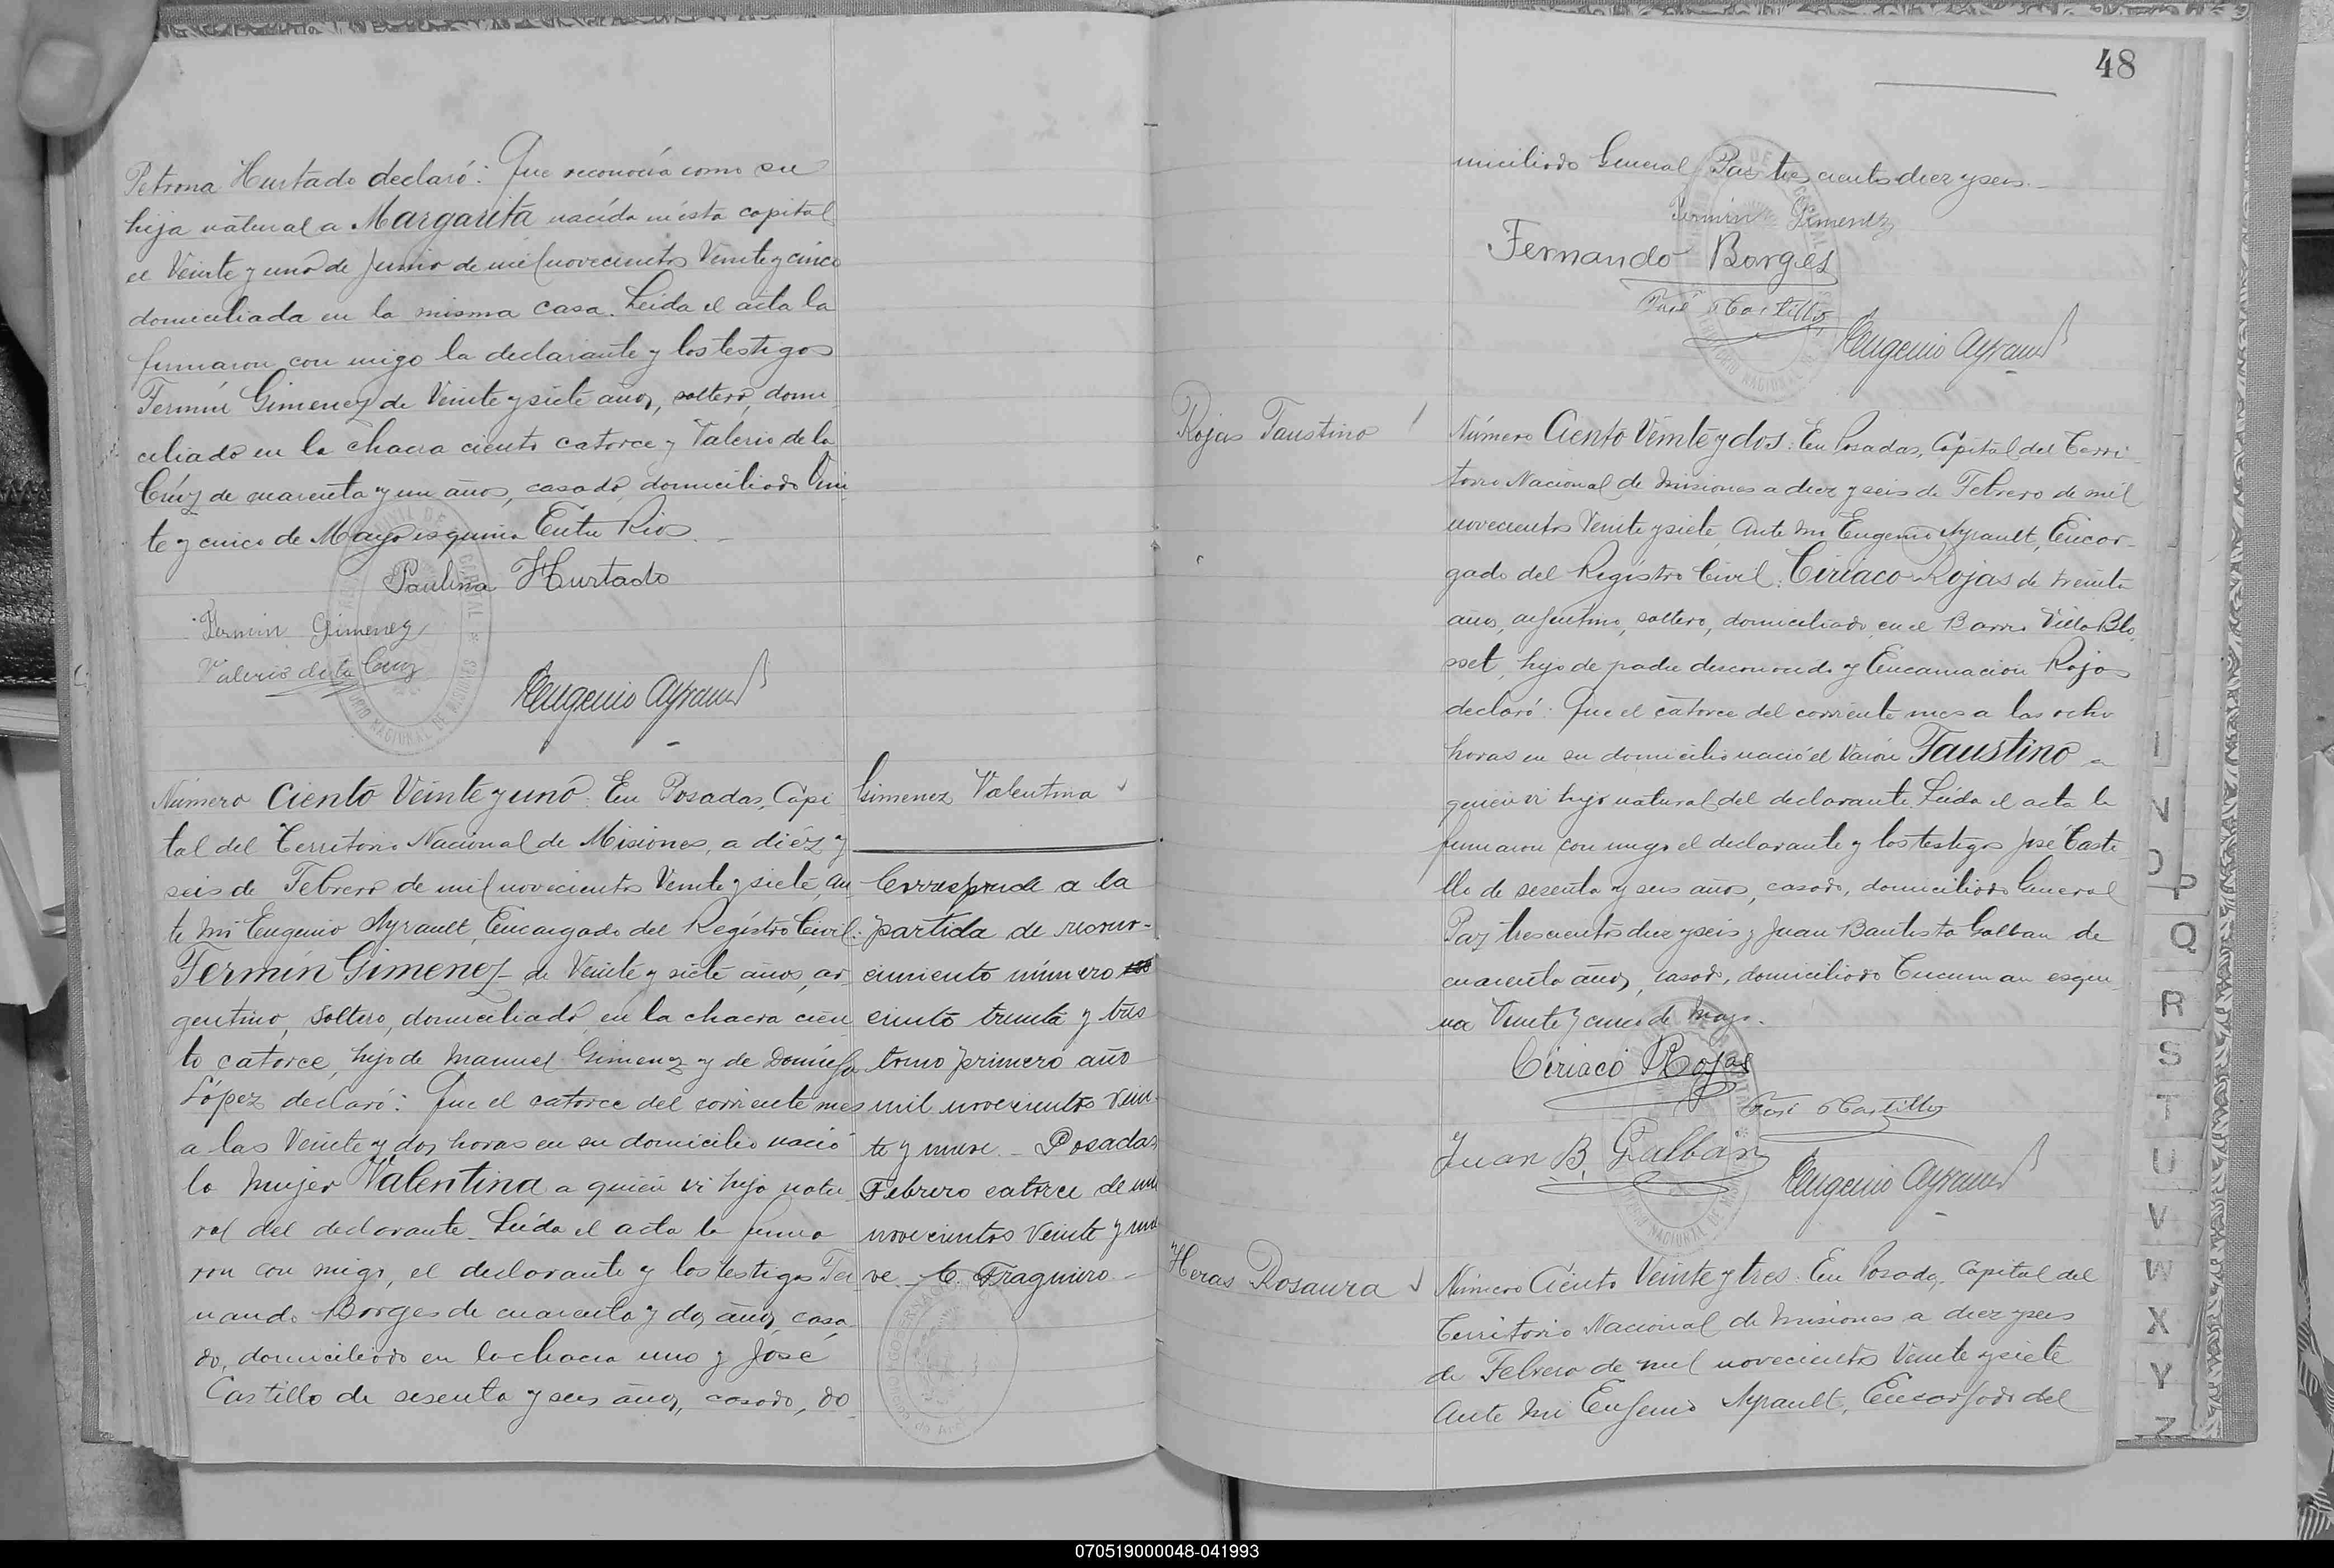 Petrona Hurtado declaró: Que reconocía como su
hija natural a Margarita nacida en ésta capital
el Veinte y uno de Junio de mil novecientos Veinte y cinco
domiciliada en la misma casa. Leida el acta la
firmaron con migo la declarante y los testigos
Fermín Gimenez de Veinte y siete años, soltero, domi
ciliado en la chacra ciento catorce y Valerio de la
Crúz de cuarenta y un años, casado, domiciliado Vein
te y cinco de Mayo esquina Entre Rios. –
Paulina Hurtado
Fermin Gimenez
Valerio de la Cruz
Eugenio Ayrault
Número Ciento Veinte y uno: En Posadas, Capi
tal del Territorio Nacional de Misiones, a diéz y
seis de Febrero de mil novecientos Veinte y siete, an
te mi Eugenio Ayrault, Encargado del Registro Civil:
Fermín Gimenez de Veinte y siete años, ar
gentino, soltero, domiciliado en la chacra cien
to catorce, hijo de Manuel Gimenez y de
López declaró: Que el catorce del corriente mes
a las Veinte y dos horas en su domicilio nació
la mujer Valentina a quien vi hija natu
ral del declarante. Leída el acta la firma
ron con migo, el declarante y los testigos Fer
nando Borges de cuarenta y dos años, casa
do, domiciliado en la chacra uno y José
Castillo de sesenta y seis años, casado, do
Gimenez Valentina
Corresponde a la
partida de reconо-
cimiento número
ciento treinta y tres
tomo primero año
mil novecientos vein
te y nueve. – Posadas
Febrero catorce de mil
novecientos veinte y nue
ve. – C. Fraguiero –
48
miciliado General Paz trescientos diez y seis. –
Fermin Gimenez
Fernando Borges
José Castillo
Eugenio Ayrault
Rojas Faustino
Número Ciento Veinte y dos: En Posadas, Capital del Terri
torio Nacional de Misiones a diez y seis de Febrero de mil
novecientos Veinte y siete, Ante mi Eugenio Ayrault, Encar-
gado del Registro Civil: Ciriaco Rojas de treinta
años, argentino, soltero, domiciliado en el Barrio Villa Blo
sset, hijo de padre desconocido y Encarnacion Rojas
declaró: Que el catorce del corriente mes a las ocho
horas en su domicilio nació el Varón Faustino a
quien vi hijo natural del declarante. Leída el acta la
firmaron con migo el declarante y los testigos José Casti
llo de sesenta y seis años, casado, domiciliado General
Paz trescientos diez y seis y Juan Bautista Galban de
cuarenta años, casado, domiciliado Tucuman esqui
na Veinte y cinco de Mayo.
Ciriaco Rojas
José Castillo
Juan B. Galban
Eugenio Ayrault
Heras Rosaura
Número Ciento Veinte y tres: En Posadas, Capital del
Territorio Nacional de Misiones a diez y seis
de Febrero de mil novecientos Veinte y siete
Ante mi Eugenio Ayrault, Encargado del
N
O
P
Q
R
S
T
U
V
W
X
Y
Z
070519000048-041993